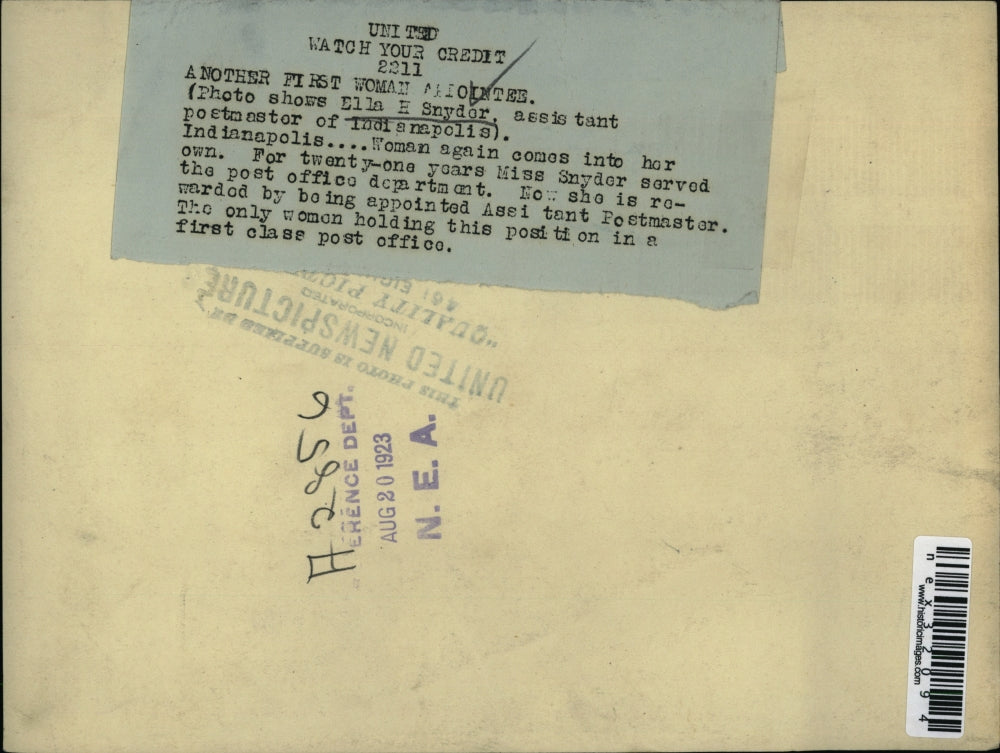 UNITED
WATCH YOUR CREDIT
2211
ANOTHER FIRST WOMAN
(Photo shows Ella H Snyder, assistant
postmaster of Indianapolis).
Indianapolis....Woman again comes into her
own. For twenty-one years Miss Snyder served
the post office department. Now she is re-
warded by being appointed Assi tant Postmaster.
The only women holding this position in a
first class post office.
THIS PHOTO IS SUPPLIED BY
UNITED NEWSPICTURE
INCORPORATED
"QUALITY
461
H-2856
ERENCE DEPT.
AUG 20 1923
N. E. A.
nex32094
www.historicimages.com